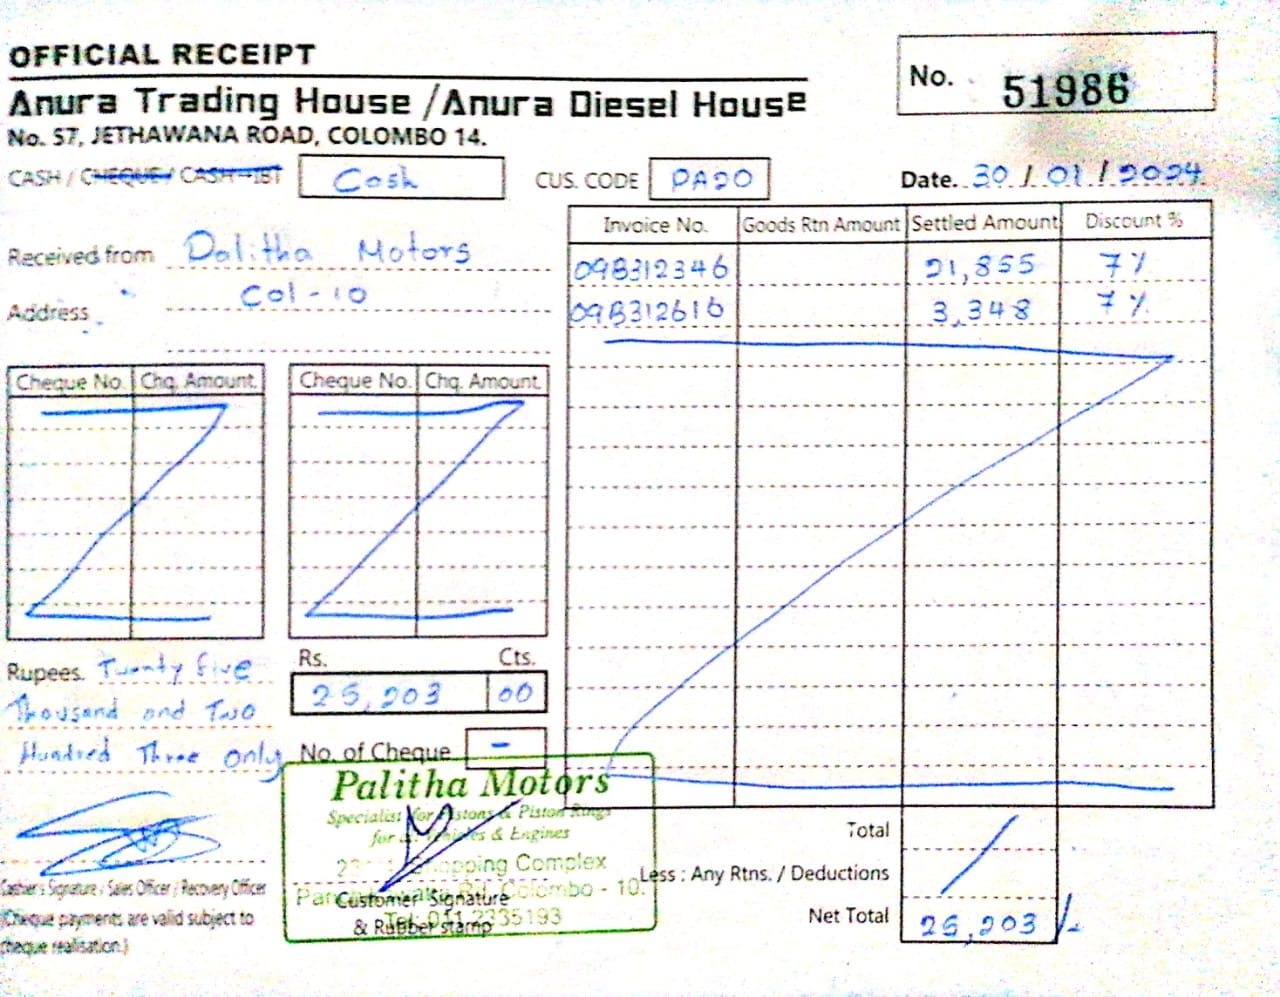 OFFICIAL RECEIPT
No. 51986
Anura Trading House / Anura Diesel House
No. 57, JETHAWANA ROAD, COLOMBO 14.
CASH / CHEQUE / CASH-IBT Cash CUS. CODE PA20 Date. 30 / 01 / 2024
Received from Palitha Motors
Address Col-10
Invoice No. Goods Rtn Amount Settled Amount Discount %
09B312346 21,855 7%
09B312616 3,348 7%
Cheque No. Chq. Amount. Cheque No. Chq. Amount.
Rupees. Twenty five
Thousand and Two
Hundred Three only
Rs. Cts.
25,203 00
No. of Cheque -
Palitha Motors
Specialist for Pistons & Piston Rings
for Vehicles & Engines
Shopping Complex
Rd, Colombo - 10.
Tel: 011 2335193
Customer Signature
& Rubber stamp
Cashier's Signature / Sales Officer / Recovery Officer
(Cheque payments are valid subject to
cheque realisation.)
Total
Less : Any Rtns. / Deductions
Net Total 25,203/-